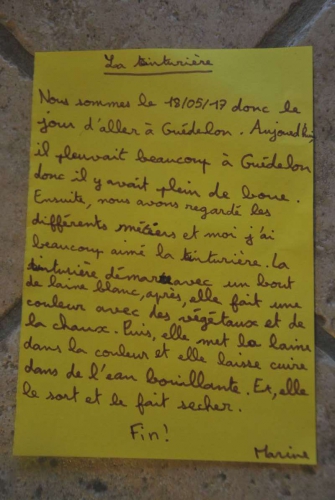 La teinturière
Nous sommes le 18/05/17 donc le
jour d'aller à Guédelon. Aujourd'hui,
il pleuvait beaucoup à Guédelon
donc il y avait plein de boue.
Ensuite, nous avons regardé les
différents métiers et moi j'ai
beaucoup aimé la teinturière. La
teinturière démarre avec un bout
de laine blanc, après, elle fait une
couleur avec des végétaux et de
la chaux. Puis, elle met la laine
dans la couleur et elle laisse cuire
dans de l'eau bouillante. Et, elle
le sort et le fait secher.
Fin!
Marine